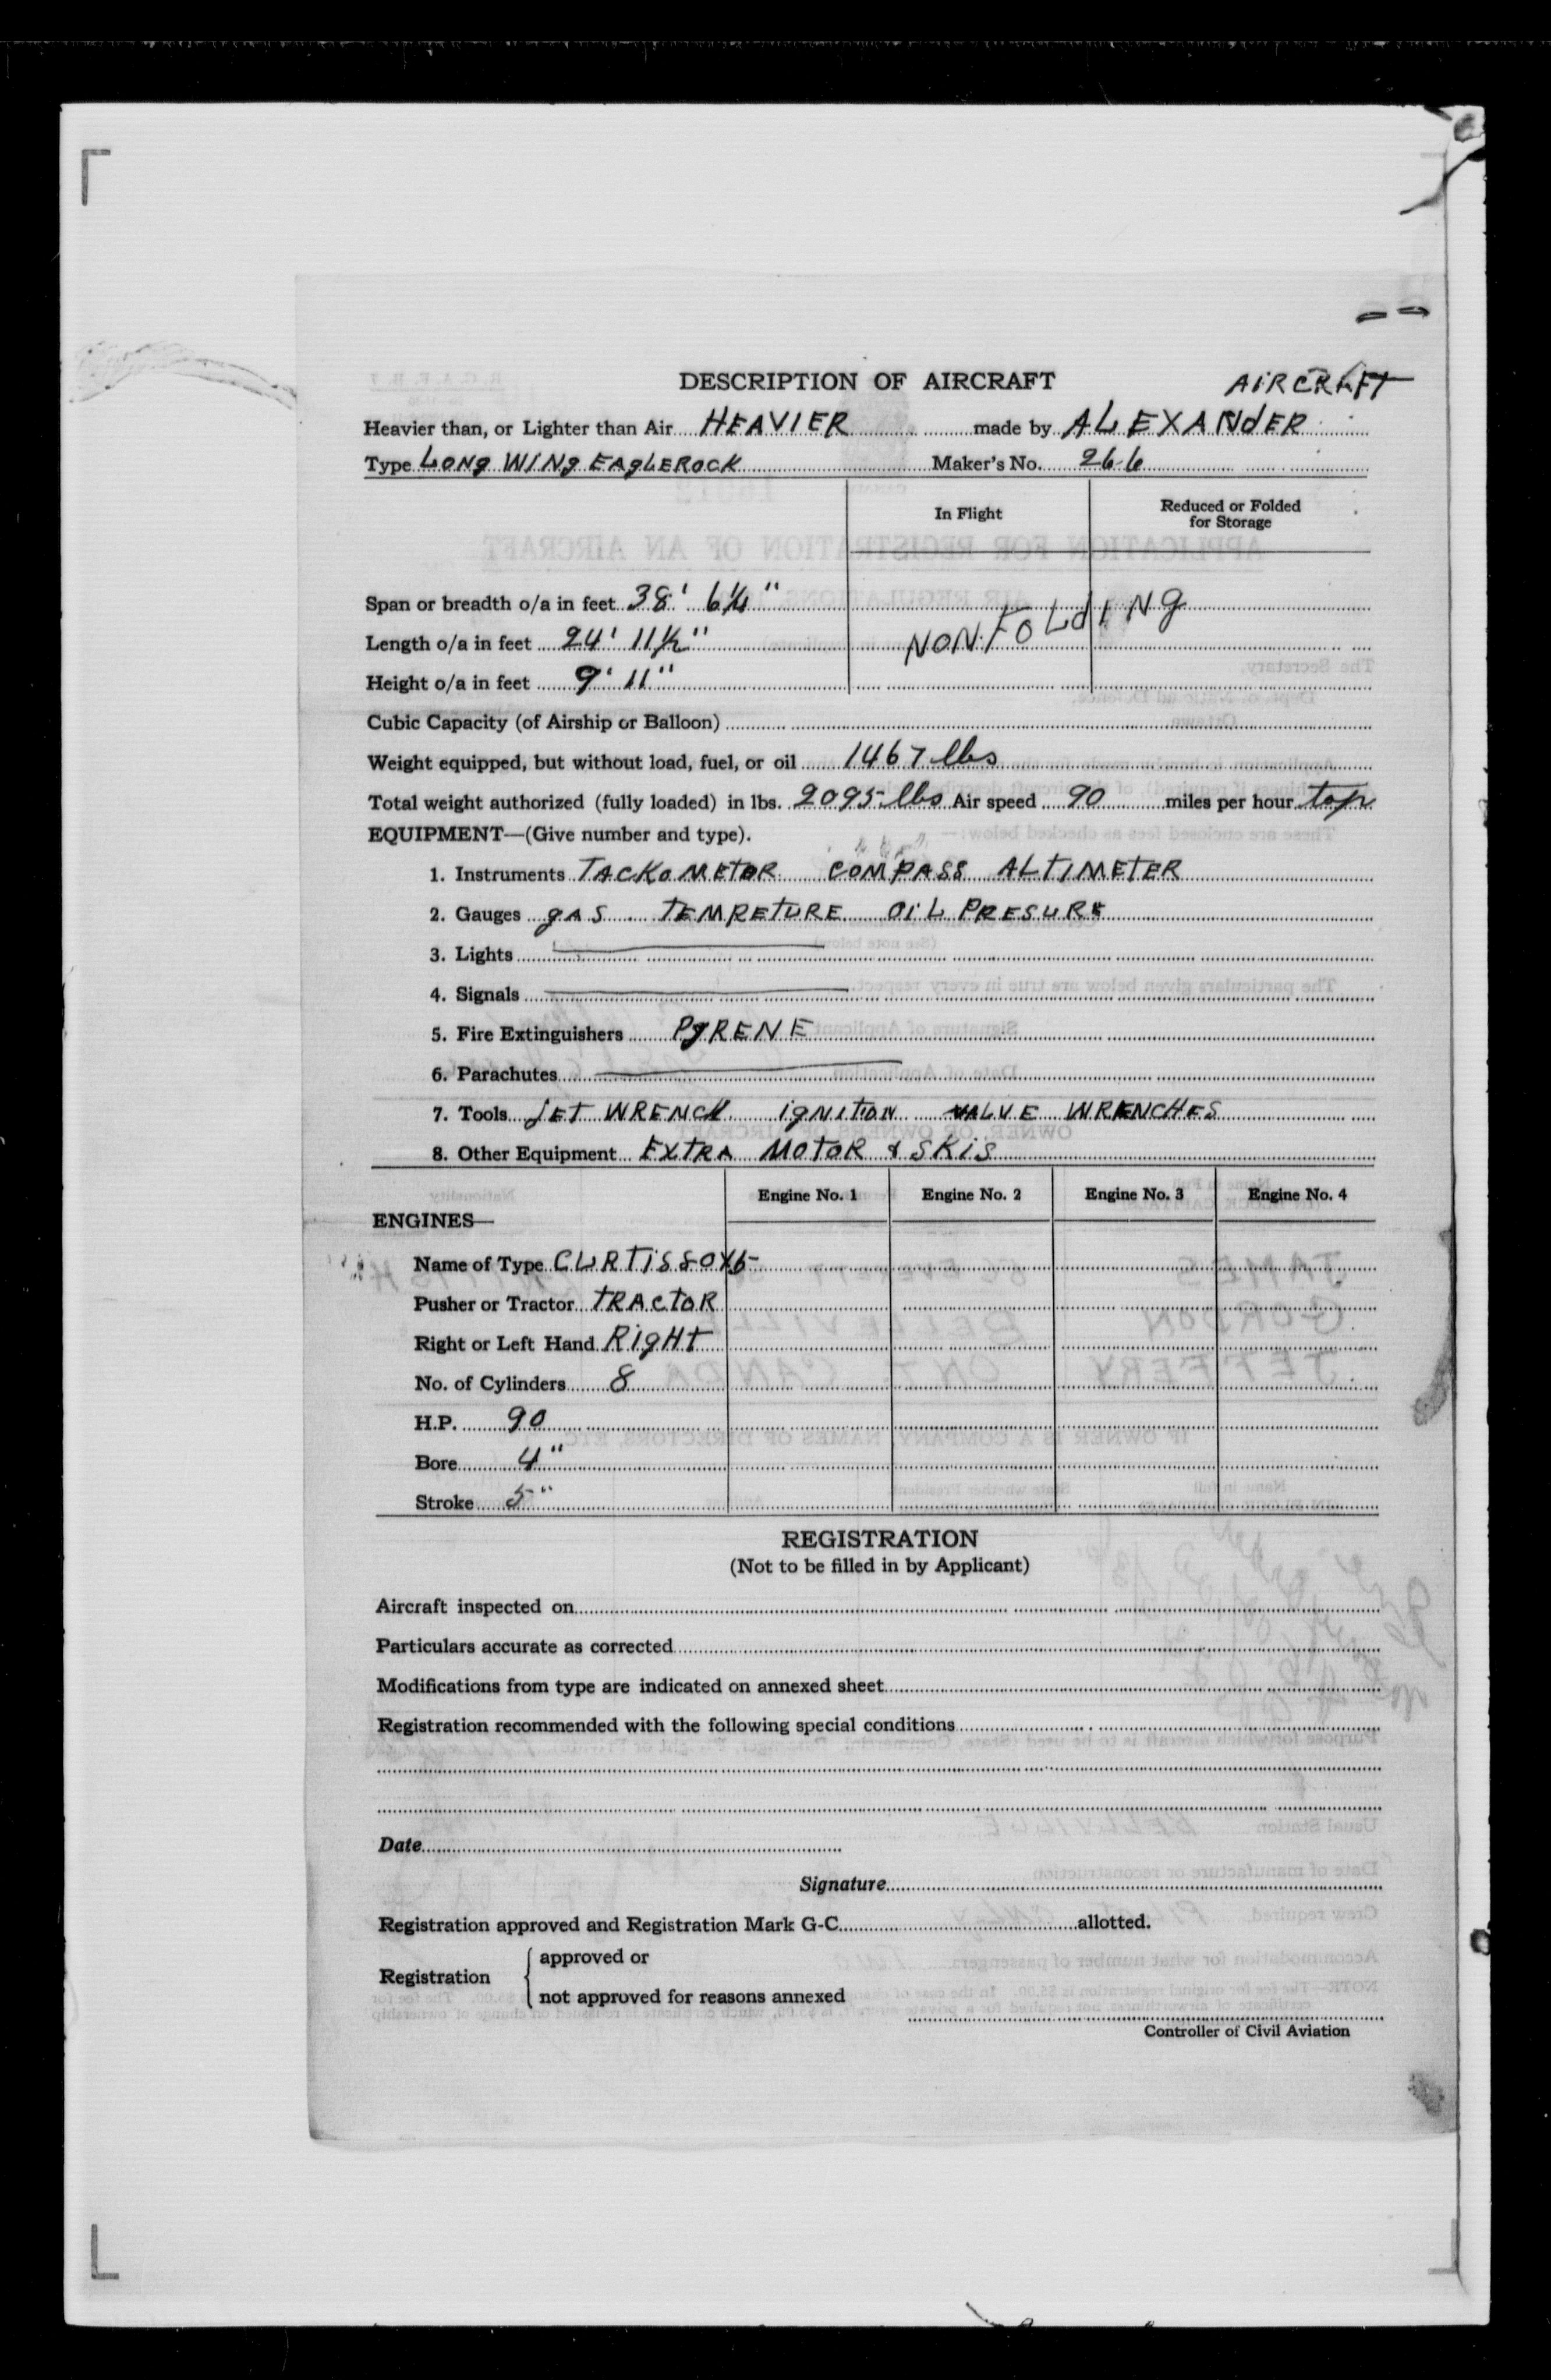 DESCRIPTION OF AIRCRAFT AIRCRAFT
Heavier than, or Lighter than Air HEAVIER made by ALEXANDER
Type LONG WING EAGLEROCK Maker's No. 266
In Flight Reduced or Folded
for Storage
Span or breadth o/a in feet 38' 6¼"
NON FOLDING
Length o/a in feet 24' 11½"
Height o/a in feet 9' 11"
Cubic Capacity (of Airship or Balloon)
Weight equipped, but without load, fuel, or oil 1467 lbs
Total weight authorized (fully loaded) in lbs. 2095 lbs Air speed 90 miles per hour top
EQUIPMENT—(Give number and type).
1. Instruments TACKOMETOR COMPASS ALTIMETER
2. Gauges GAS TEMPRETURE OIL PRESURE
3. Lights
4. Signals
5. Fire Extinguishers PYRENE
6. Parachutes
7. Tools SET WRENCH IGNITION VALVE WRENCHES
8. Other Equipment EXTRA MOTOR & SKIS
Engine No. 1 Engine No. 2 Engine No. 3 Engine No. 4
ENGINES—
Name of Type CURTISS OX5
Pusher or Tractor TRACTOR
Right or Left Hand RIGHT
No. of Cylinders 8
H.P. 90
Bore 4"
Stroke 5"
REGISTRATION
(Not to be filled in by Applicant)
Aircraft inspected on
Particulars accurate as corrected
Modifications from type are indicated on annexed sheet
Registration recommended with the following special conditions
Date
Signature
Registration approved and Registration Mark G-C allotted.
Registration approved or
not approved for reasons annexed
Controller of Civil Aviation